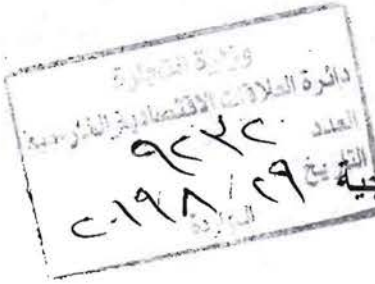 وزارة التجارة
دائرة العلاقات الاقتصادية الخارجية
العدد
التاريخ ٢٩ / ٨ / ٢٠١٩
الواردة
جية